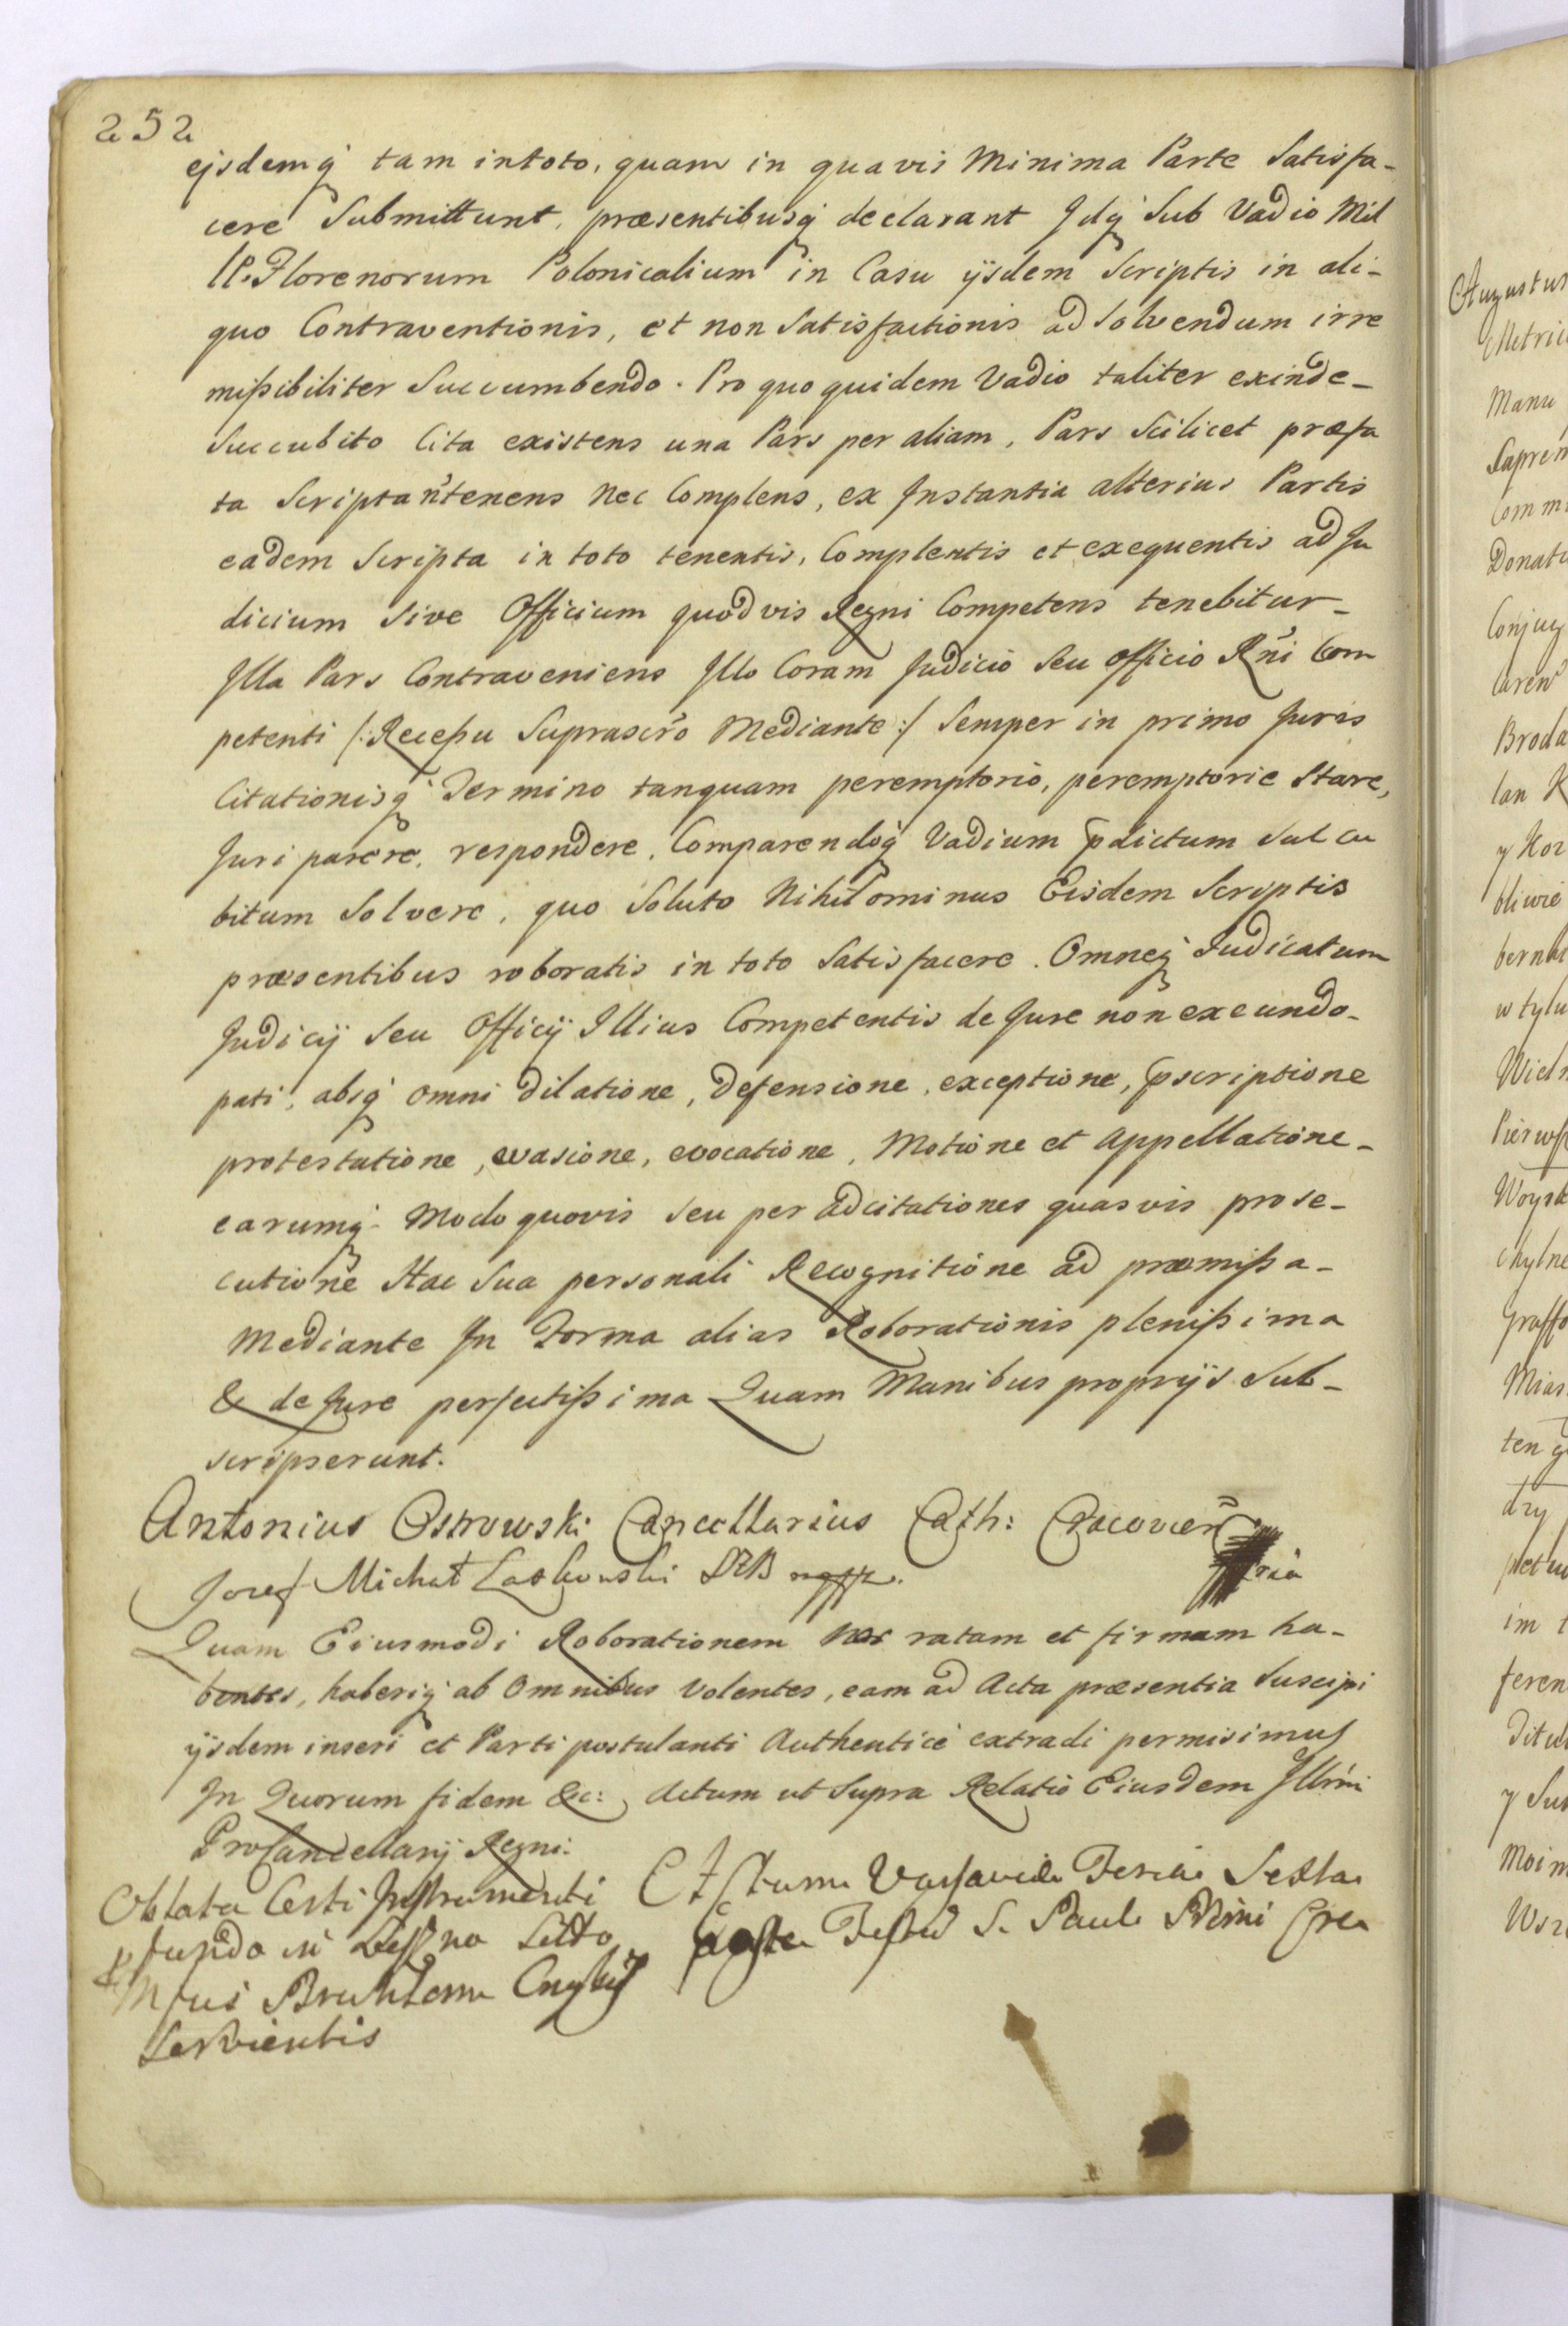 252
ejsdemq́ tam intoto, quam in quavis Minima Parte Satisfa-
cere Submittunt, præsentibusq́ declarant Jdq́ Sub Vadio Mil
lle Florenorum Polonicalium in Casu ijsdem Scriptis in ali-
quo Contraventionis, et non Satisfactionis ad Solvendum irre
mißibiliter Succumbendo. Pro quo quidem Vadio taliter exinde-
Succubito Cita existens una Pars per aliam, Pars Scilicet præfa
ta Scripta ñ tenens nec Complens, ex Jnstantia alterius Partis
eadem Scripta in toto tenentis, Complentis et exequentis ad Ju
dicium Sive Officium quodvis Regni Competens tenebitur-
Jlla Pars Contraveniens Jllo Coram Judicio Seu officio Rñi Com
petenti /: Receßu Suprascro Mediante :/ Semper in primo Juris
Citationisq́ Termino tanquam peremptorio, peremptorie Stare,
Juri parere, respondere, Comparendoq́ Vadium pdictum Succu
bitum Solvere, quo Soluto Nihilominus Eisdem Scriptis
præsentibus roboratis in toto Satisfacere. Omneq́ Judicatum
Judicij Seu Officij Jllius Competentis de Jure non exeundo-
pati, absq́ omni dilatione, defensione, exceptione, pscriptione
protestatione, evasione, evocatione, Motione et appellatione-
earumq́ Modo quovis seu per adcitationes quasvis prose-
cutione Hac Sua personali Recognitione ad præmißa-
Mediante Jn Forma alias Roborationis plenißima
& de Jure perfectißima Quam Manibus proprijs Sub-
scripserunt.
Antonius Ostrowski Cancellarius Cath: Cracovien
Jozef Michał Laskowski mpp.
Quam Eiusmodi Roborationem Nos ratam et firmam ha-
bentes, haberiq́ ab Omnibus Volentes, eam ad Acta præsentia Suscipi
ijsdem inseri et Parti postulanti Authenticè extradi permisimus
Jn Quorum fidem &c: Actum ut Supra Relatio Eiusdem Jllrmi
ProCancellarij Regni.
Oblata Instrumenti
Actum Varsaviæ Feria Sexta
post Festum S. Pauli Primi Ere
Servientis
Augustus
Manu
Donati
Conjug
Broda
y
w tylu
ten
dry
im
feren
Ditul
y